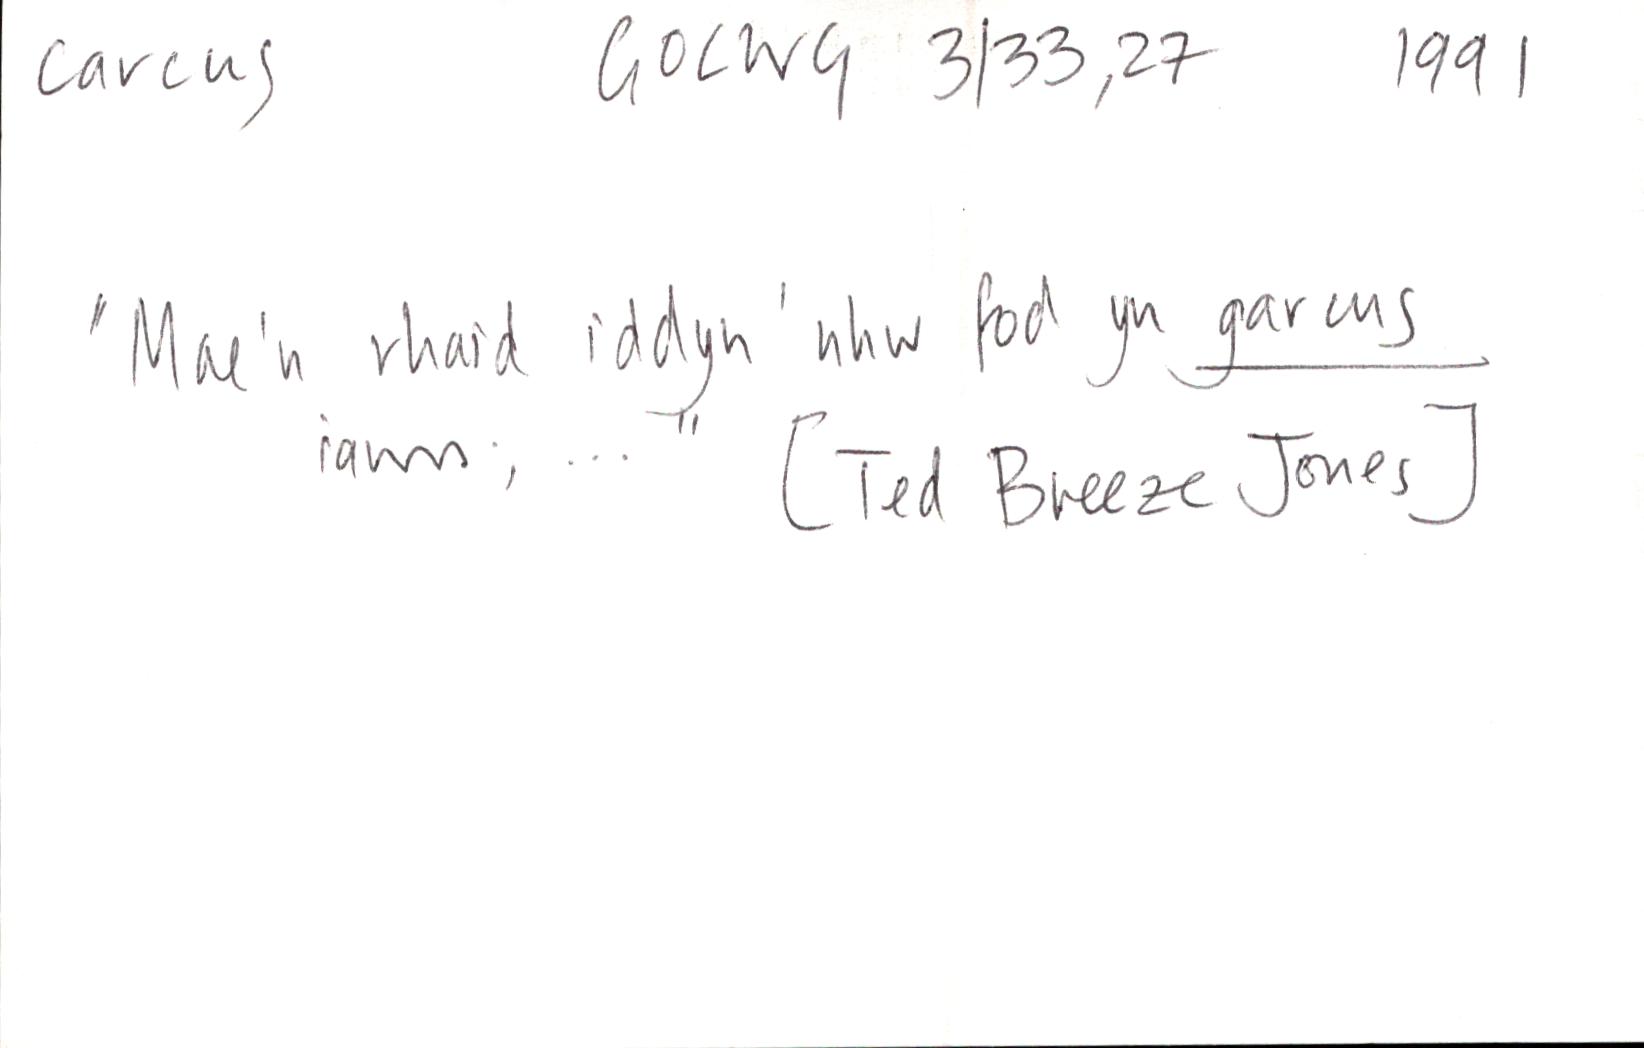 carcus GOLWG 3/33,27 1991
"Mae'n rhaid iddyn 'nhw fod yn garcus
iawn; ..." [Ted Breeze Jones]